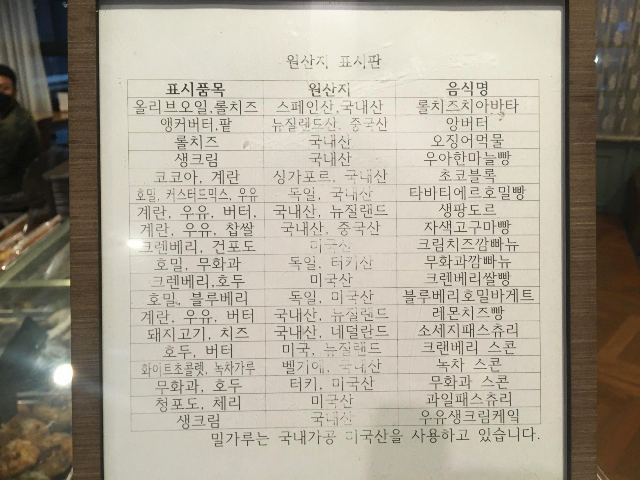 원산지 표시판
표시품목 원산지 음식명
올리브오일,롤치즈 스페인산,국내산 롤치즈치아바타
앵커버터,팥 뉴질랜드산, 중국산 앙버터
롤치즈 국내산 오징어먹물
생크림 국내산 우아한마늘빵
코코아, 계란 싱가포르, 국내산 초코블록
호밀, 커스터드믹스, 우유 독일, 국내산 타바티에르호밀빵
계란, 우유, 버터, 국내산, 뉴질랜드 생팡도르
계란, 우유, 찹쌀 국내산, 중국산 자색고구마빵
크렌베리, 건포도 미국산 크림치즈깜빠뉴
호밀, 무화과 독일, 터키산 무화과깜빠뉴
크렌베리,호두 미국산 크렌베리쌀빵
호밀, 블루베리 독일, 미국산 블루베리호밀바게트
계란, 우유, 버터 국내산, 뉴질랜드 레몬치즈빵
돼지고기, 치즈 국내산, 네덜란드 소세지패스츄리
호두, 버터 미국, 뉴질랜드 크랜베리 스콘
화이트초콜렛, 녹차가루 벨기에, 국내산 녹차 스콘
무화과, 호두 터키, 미국산 무화과 스콘
청포도, 체리 미국산 과일패스츄리
생크림 국내산 우유생크림케익
밀가루는 국내가공 미국산을 사용하고 있습니다.